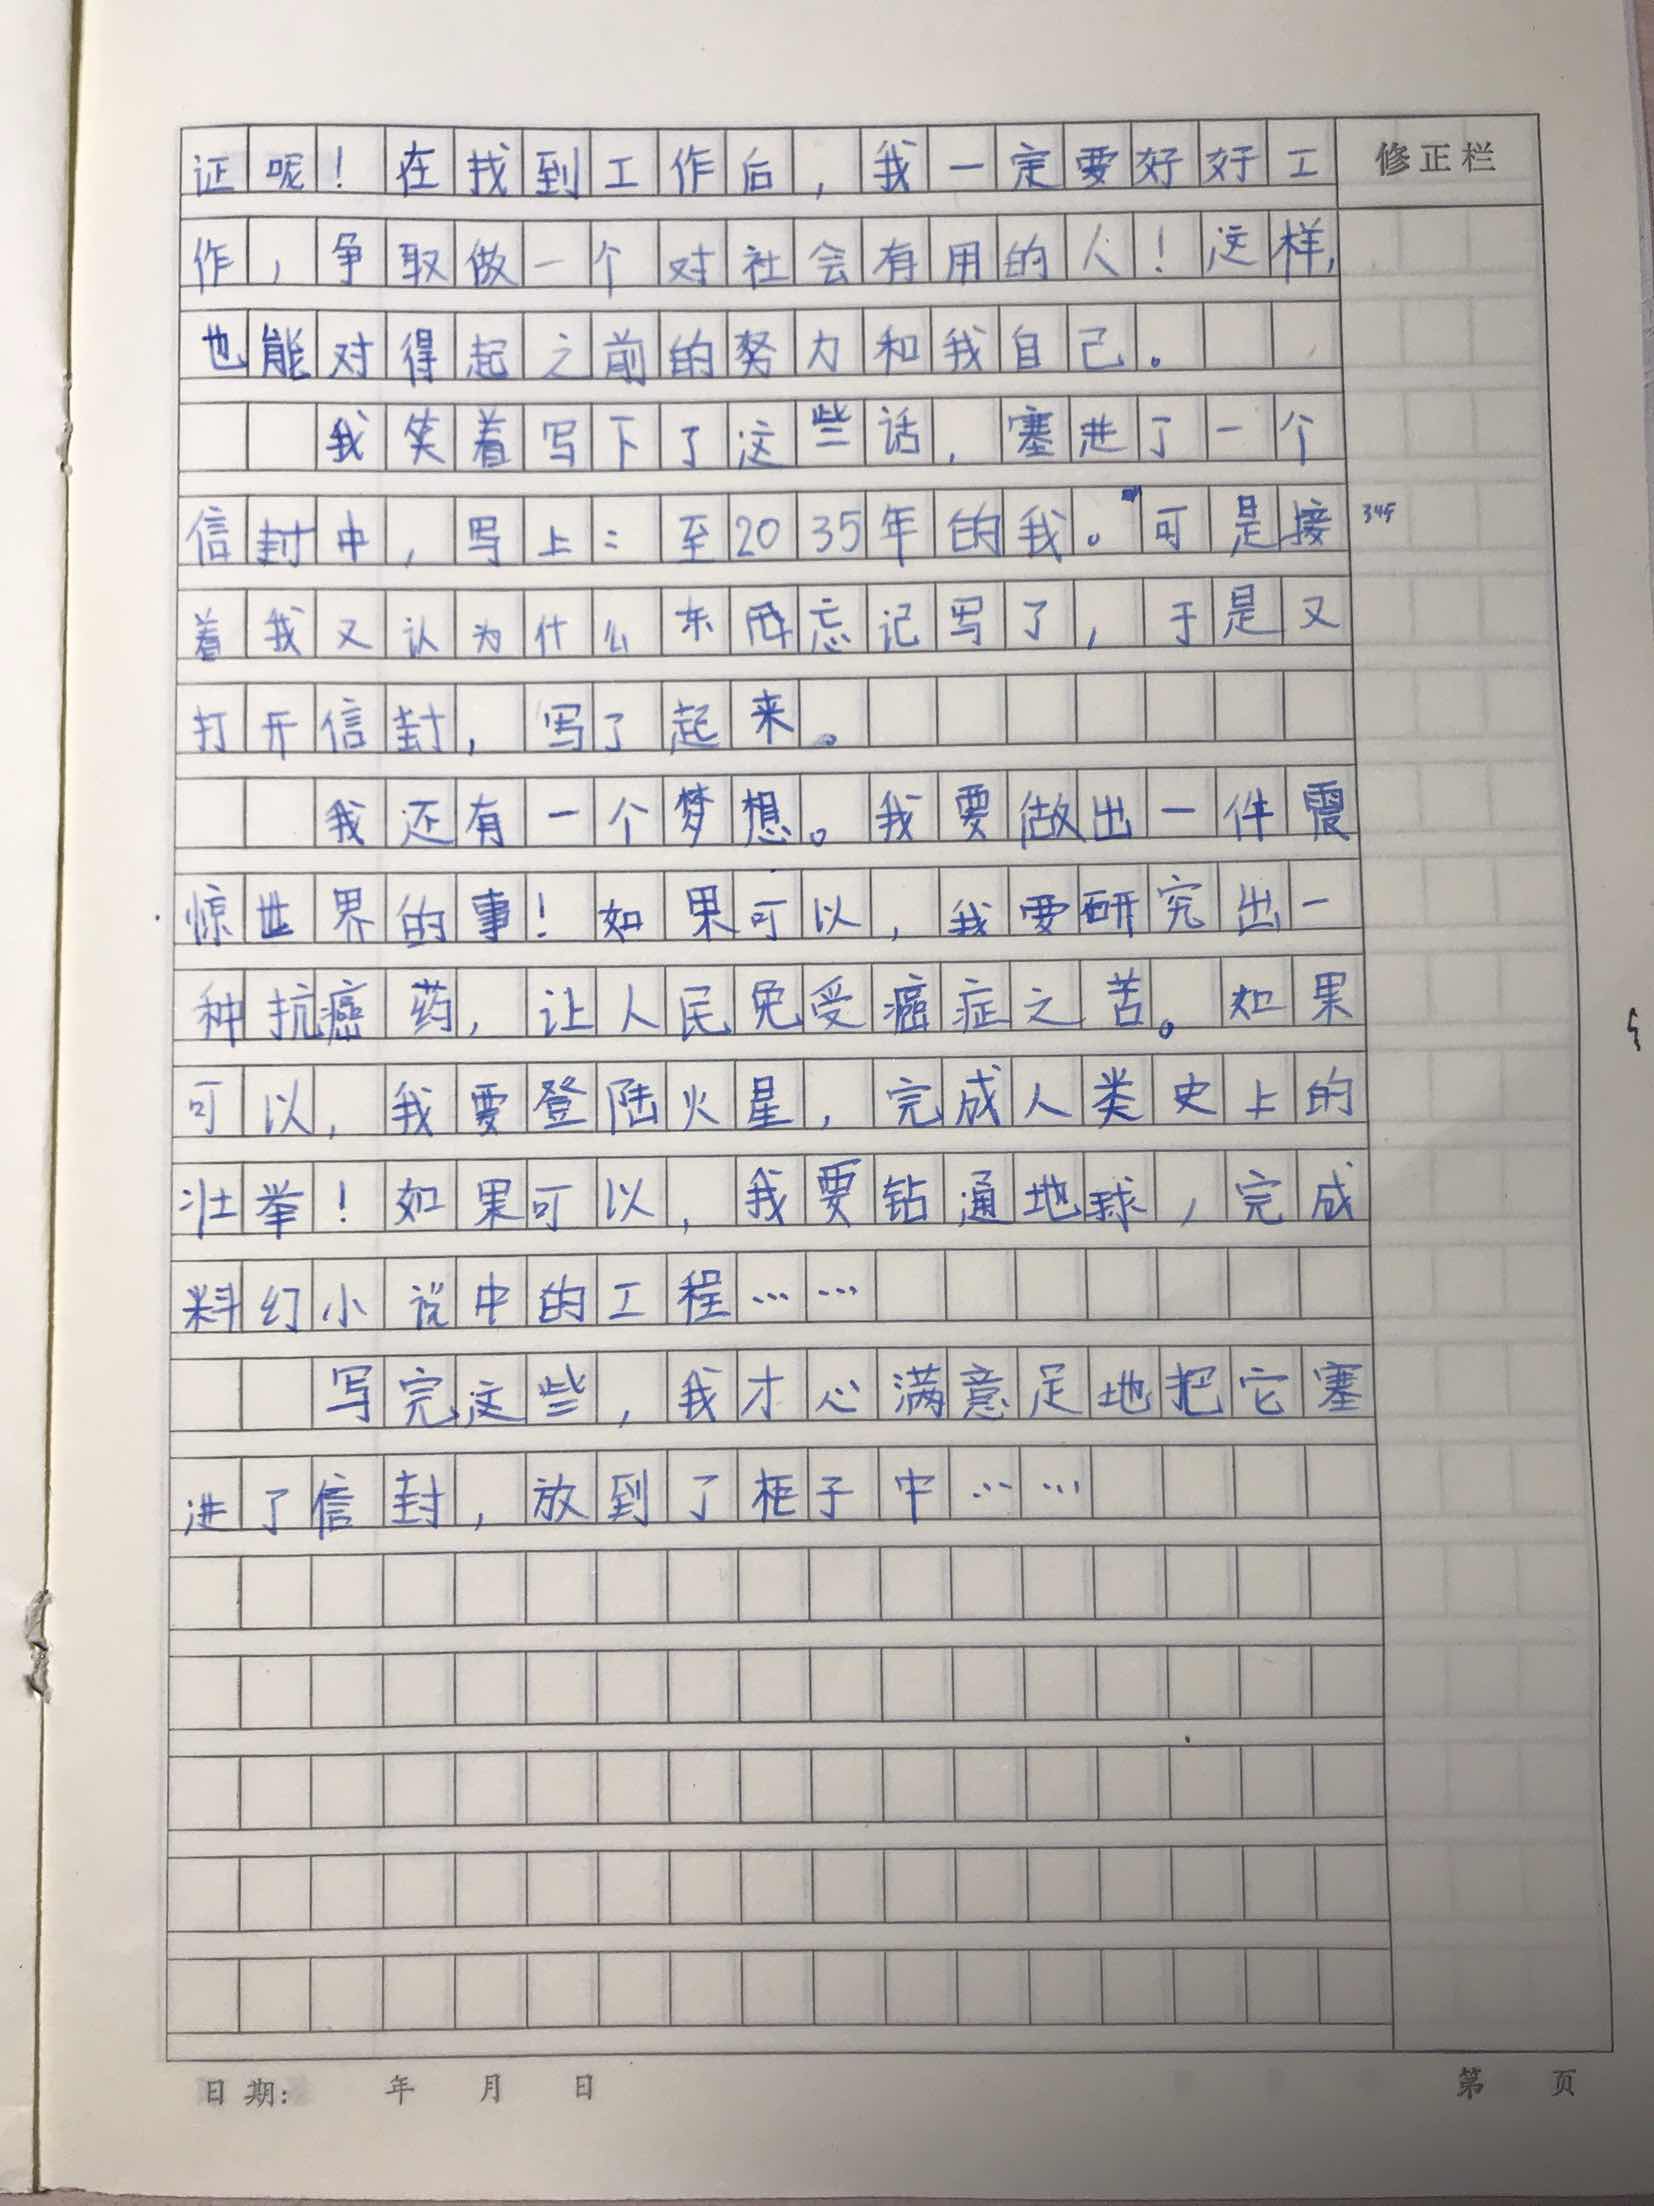 证呢！在找到工作后，我一定要好好工
修正栏
作，争取做一个对社会有用的人！这样，
也能对得起之前的努力和我自己。
我笑着写下了这些话，塞进了一个
信封中，写上：至2035年的我。"可是接
345
着我又认为什么东西忘记写了，于是又
打开信封，写了起来。
我还有一个梦想。我要做出一件震
惊世界的事！如果可以，我要研究出一
种抗癌药，让人民免受癌症之苦。如果
可以，我要登陆火星，完成人类史上的
壮举！如果可以，我要钻通地球，完成
料幻小说中的工程……
写完这些，我才心满意足地把它塞
进了信封，放到了柜子中……
日期：　年　月　日
第　页